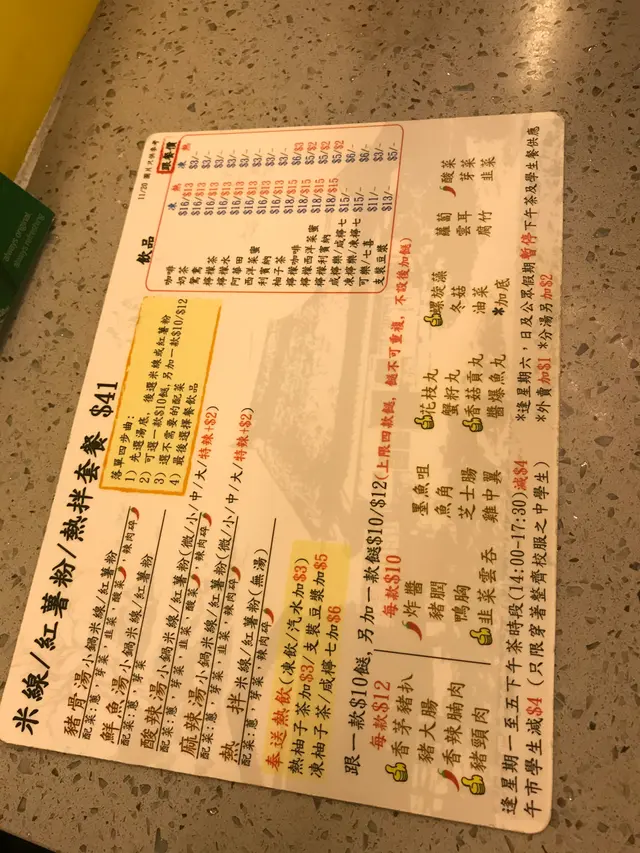 米線/紅薯粉/熱拌套餐 $41
豬骨湯小鍋米線/紅薯粉
配菜:蔥，芽菜，韭菜，酸菜，辣肉碎
鮮魚湯小鍋米線/紅薯粉
配菜:蔥，芽菜
酸辣湯小鍋米線/紅薯粉(微/小/中/大/特辣+$2)
配菜:蔥，芽菜，韭菜，酸菜，辣肉碎
麻辣湯小鍋米線/紅薯粉(微/小/中/大/特辣+$2)
配菜:蔥，芽菜，韭菜，辣肉碎
熱 拌 米線/紅薯粉(無湯)
配菜:蔥，芽菜，辣肉碎
落單四步曲:
1) 先選湯底，後選米線或紅薯粉
2) 可選一款$10餸，另加一款$10/$12
3) 選不需要的配菜
4) 最後選擇餐飲品
奉送熱飲(凍飲/汽水加$3)
熱柚子茶加$3/支裝豆漿加$5
凍柚子茶/咸檸七加$6
11/20 圖片只供參考
飲品
凍 熱 跟餐價
凍 熱
咖啡 $16/$13 $3/-
奶茶 $16/$13 $3/-
鴛鴦 $16/$13 $3/-
檸檬茶 $16/$13 $3/-
檸檬水 $16/$13 $3/-
阿華田 $16/$13 $3/-
西洋菜蜜 $16/$13 $3/-
利賓納 $16/$13 $3/-
柚子茶 $18/$15 $6/$3
檸檬咖啡 $18/$15 $5/$2
檸檬西洋菜蜜 $18/$15 $5/$2
檸檬利賓納 $18/$15 $5/$2
咸檸樂/咸檸七 $15/- $6/-
凍檸樂/凍檸七 $15/- $6/-
可樂/七喜 $11/- $3/-
支裝豆漿 $13/- $5/-
跟一款$10餸，另加一款餸$10/$12(上限四款餸，餸不可重複，不設後加餸)
每款$12
香茅豬扒
豬大腸
香辣腩肉
豬頸肉
每款$10
炸醬 墨魚咀 花枝丸 螺旋藻 蘿蔔 酸菜
豬膶 魚角 蟹籽丸 冬菇 雲耳 芽菜
鴨胸 芝士腸 香菇貢丸 油菜 腐竹 韭菜
韭菜雲吞 雞中翼 醬爆魚丸 *加底
逢星期一至五下午茶時段(14:00-17:30)減$4
午市學生減$4 (只限穿著整齊校服之中學生)
*逢星期六，日及公眾假期暫停下午茶及學生餐供應
*外賣加$1 *分湯另加$2
always original
always refreshing